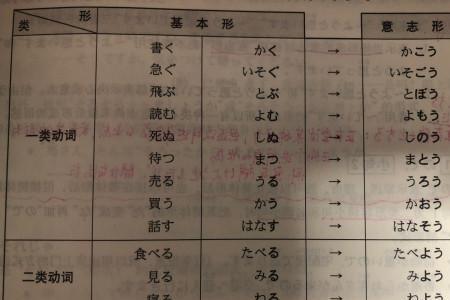 形
类
基本形
意志形
一类动词
書く かく → かこう
急ぐ いそぐ → いそごう
飛ぶ とぶ → とぼう
読む よむ → よもう
死ぬ しぬ → しのう
待つ まつ → まとう
売る うる → うろう
買う かう → かおう
話す はなす → はなそう
二类动词
食べる たべる → たべよう
見る みる → みよう
寝る ねる → ねよう